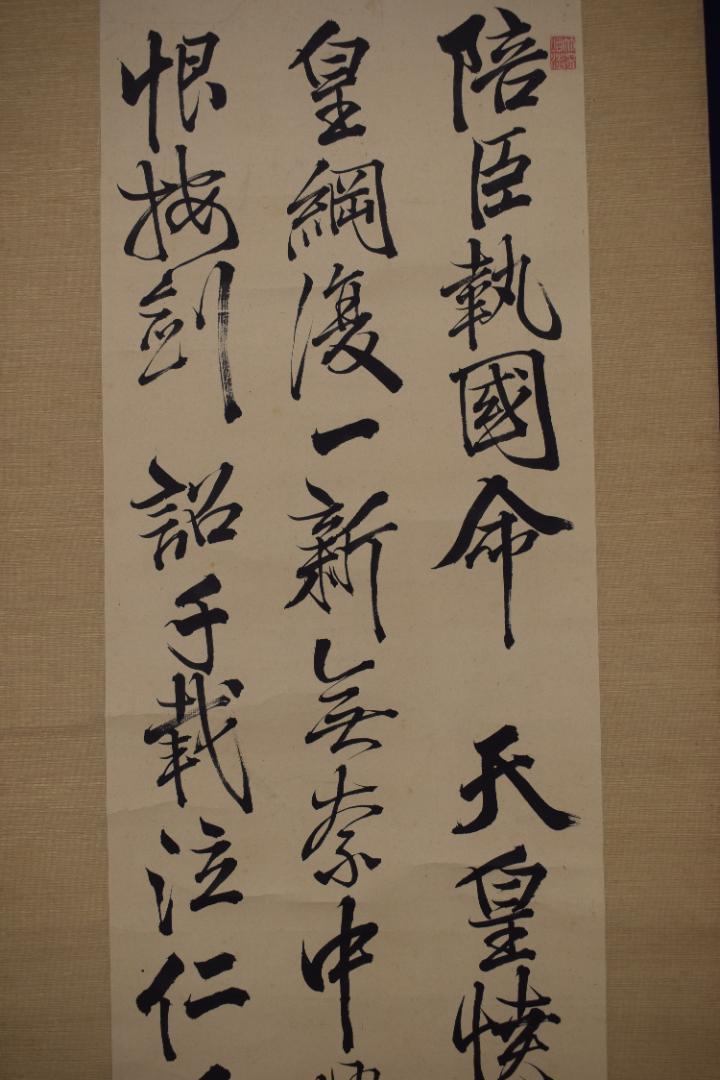 陪臣執國命 天皇憤
皇綱復一新無奈中
恨按劍 詔千載泣仁